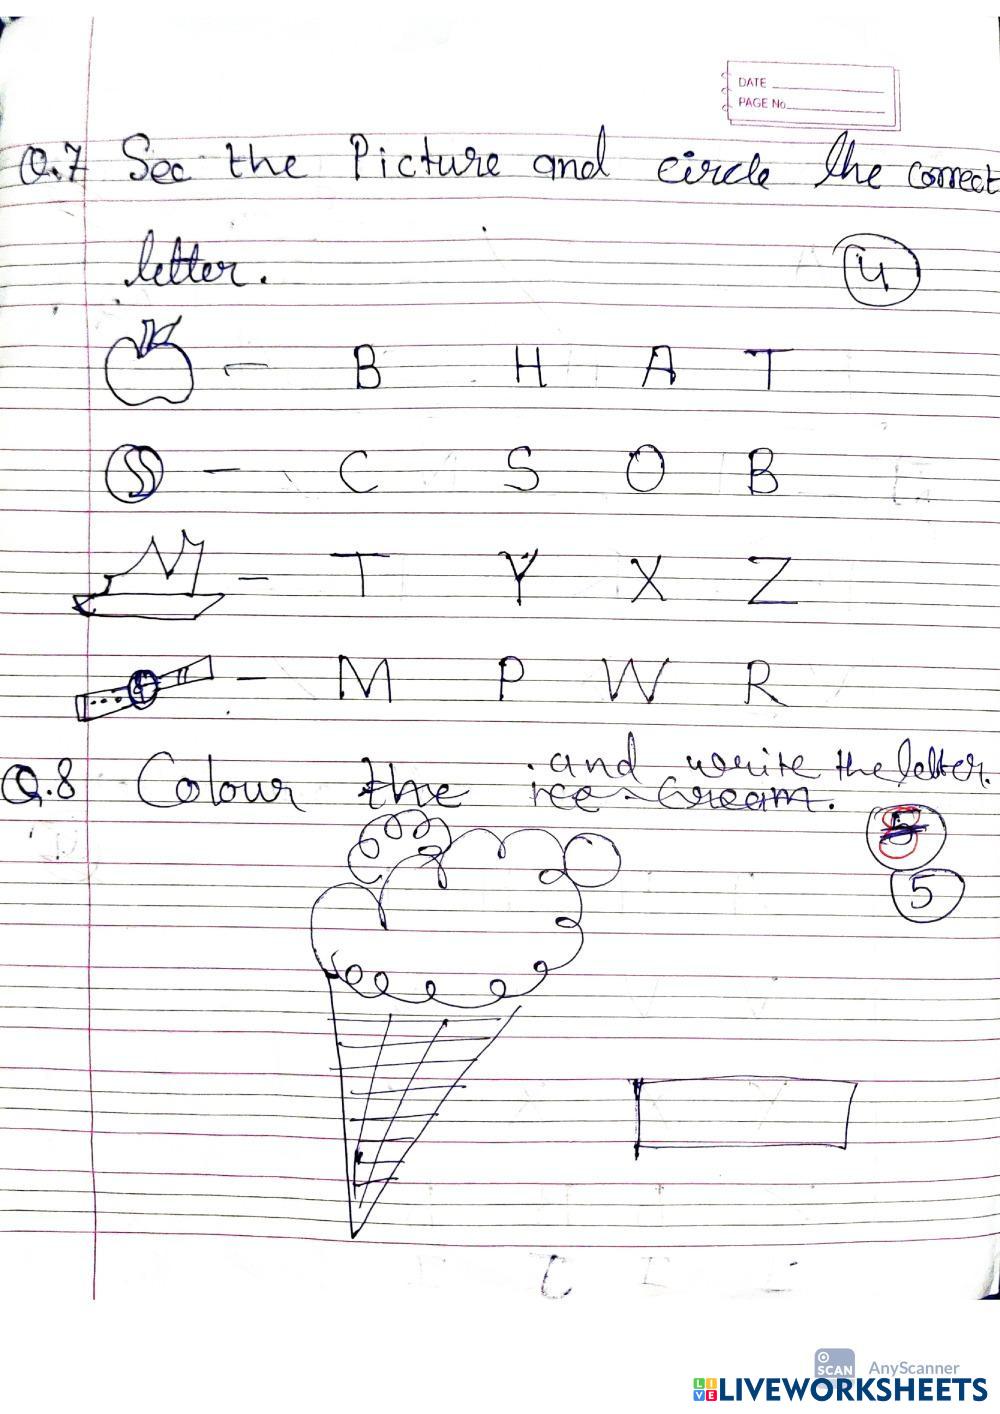 DATE
PAGE No.
Q.7 See the Picture and circle the correct
letter.
4
B H A T
C S O B
T Y X Z
M P W R
Q.8 Colour the ice-cream. and write the letter.
5
SCAN AnyScanner
LIVEWORKSHEETS